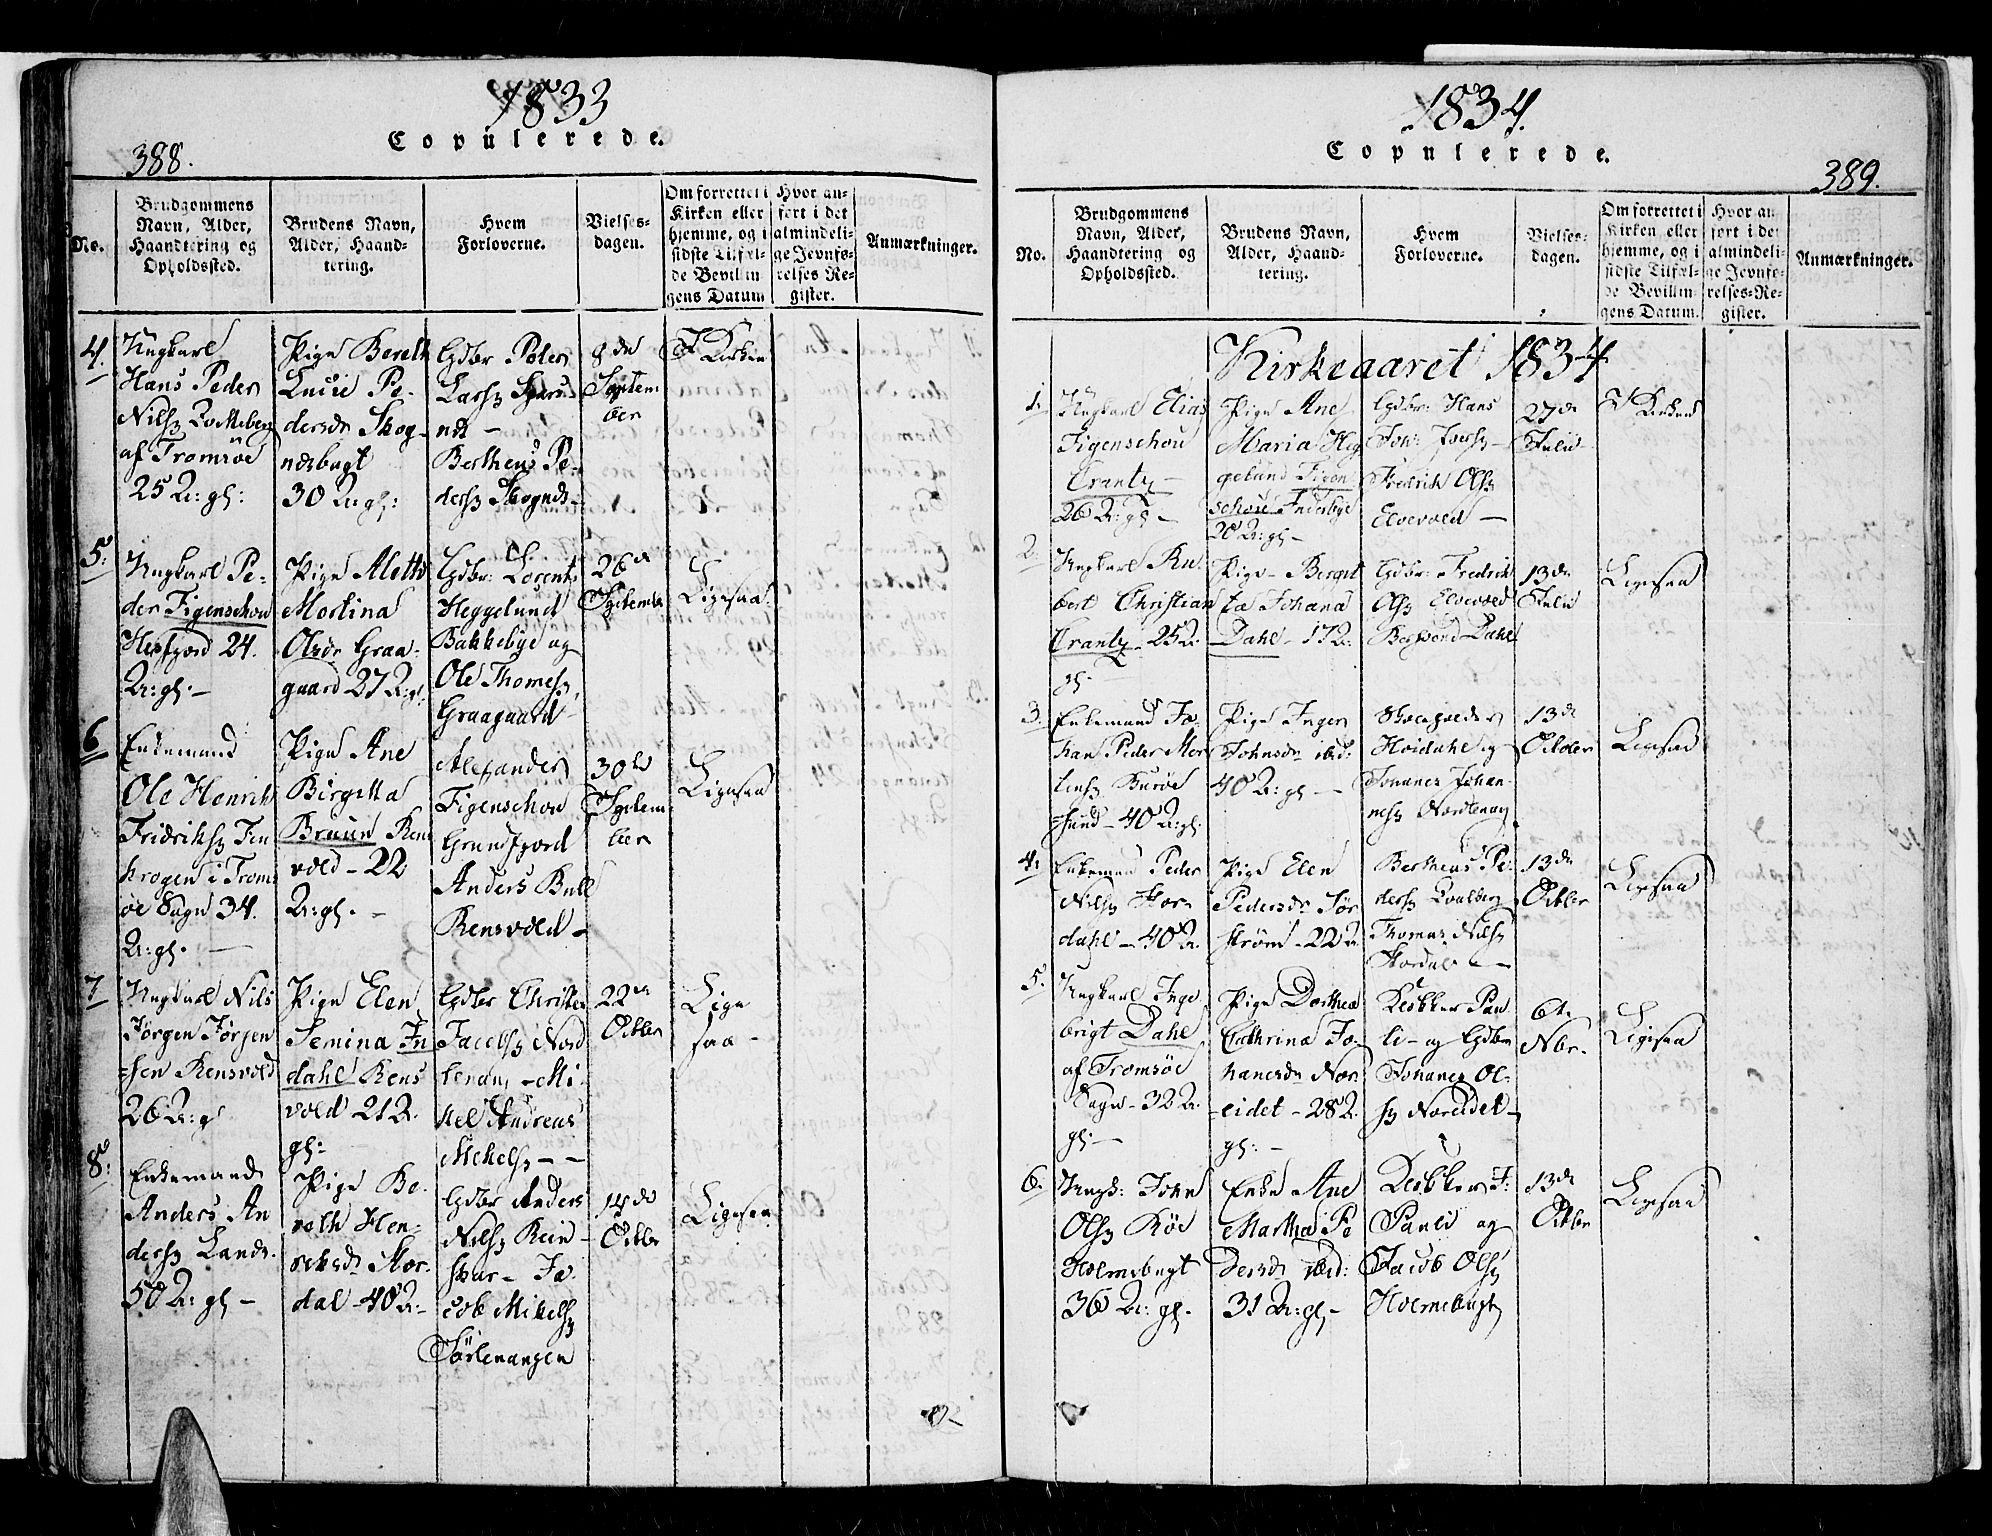 1833
Copulerede.
388.
No.
Brudgommens
Navn, Alder,
Haandtering og
Opholdssted.
Brudens Navn,
Alder, Haand-
tering.
Hvem
Forloverne.
Vielses-
dagen.
Om forrettet i
Kirken eller
hjemme, og i
sidste Tilfæl-
de Bevillin
gens Datum
Hvor an-
ført i det
almindeli-
ge Jevnfø-
relses Re-
gister.
Anmærkninger.
4.
Ungkarl
Hans Peder
Nilss
af Tromsöe
25 Ar: gl:
Pige Bereth
Lucie Pe-
dersdr Skog-
nesbugt
30 Ar gl:
Gdbr Peder
Larss
Bertheus Pe-
derss
8de
Septem
ber
I Kirken
5.
Ungkarl Pe-
der Figenschou
24.
Ar: gl: -
Pige Aleth
Martina
Olsdr Graa-
gaard 27 Ar gl.
Gdbr: Lorents
Heggelund
Bakkebye og
Ole Thomess
Graagaard
26de
Septembr
Ligesaa.
6
Enkemand
Ole Henrik
Fridrikss Fin
krogen i Troms
öe Sogn 34.
Ar: gl. -
Pige Ane
Birgitta
Bruun Rens
vold - 22
Ar: gl. -
Alexander
Figenschou
Grundfjord
Anders Bull
Rensvold -
30te
Septem-
ber
Ligesaa
7
Ungkarl Nils
Jörgen Jörgen
sen Rensvold
26 Ar: g
Pige Elen
Semina In
dahl Rens
vold 21 A.
gl:
Gdbr Christen
Jacobs Nord
lenang - Mi-
kel Andreas
Mikelss - -
22de
Octbr
Lige
saa -
8:
Enkemand
Anders An
derss
50 Ar: gl -
Pige Be-
reth Hen-
Stor-
dal - 40 A -
Gdbr Anders
Nilss Rein-
skar - Ja-
cob Mikelss
Sörlenangen
14de
Octbr
Ligesaa
1834.
Copulerede.
389.
No.
Brudgommens
Navn, Alder,
Haandtering og
Opholdssted.
Brudens Navn,
Alder, Haand-
tering.
Hvem
Forloverne.
Vielses-
dagen.
Om forrettet i
Kirken eller
hjemme, og i
sidste Tilfæl-
de Bevillin-
gens Datum.
Hvor an
ført i det
almindeli-
ge Jevnfø-
relses-Re-
gister.
Anmærkninger.
Kirkeaaret 1834
1.
Ungkarl Elias
Figenschou
Crantz -
26 Ar: gl -
Pige Ane
Maria Heg
gelund Figen
schou Inderbye
20 Ar: gl -
Gdbr: Hans
Fredrik Olss
Elvevold -
27de
Julii
I Kirken
2.
Ungkarl Ru-
bert Christian
Crantz - 25 A.
gl -
Pige - Bergit
ta Johana
Dahl - 17 A.
Gdbr: Fredrik
Olss Elvevold
Dahl
13de
Julii
Ligesaa
3.
Enkemand Jo-
han Peder Mor
tenss
sund - 40 Ar: gl.
Pige Inger
Johnsdr ibid:
40 Ar: gl -
Höidahl og
Johanes Johan-
ness Nordlenang
13de
October
Ligesaa
4:
Enkeman Peder
Nilss Stor-
dahl - 40 A.
Pige Elen
Pedersdr Sör
ström - 22 A
Bertheus Pe-
derss
Thomas Nilss
Stordal - -
13de
Octbr
Ligesaa
5.
Ungkarl Inge-
brigt Dahl
af Tromsöe
Sogn - 32 A.
gl: -
Pige Dorthea
Cathrina Jo-
hanesdr Nor-
eidet - 28 A.
gl: -
Klokker Pau
li - og Gdbr
Johanes Ol-
ss Noreidet -
6t.
Nbr.
Ligesaa
6.
Ungk: John
Olss Röe
Holmebugt
36 Ar: gl.
Enke Ane
Marthea Pe
dersdr ibid:
31 Ar: gl -
Klokker J:
Pauli og
Jacob Olss
Holmebugt
13de
Octbr
Ligesaa